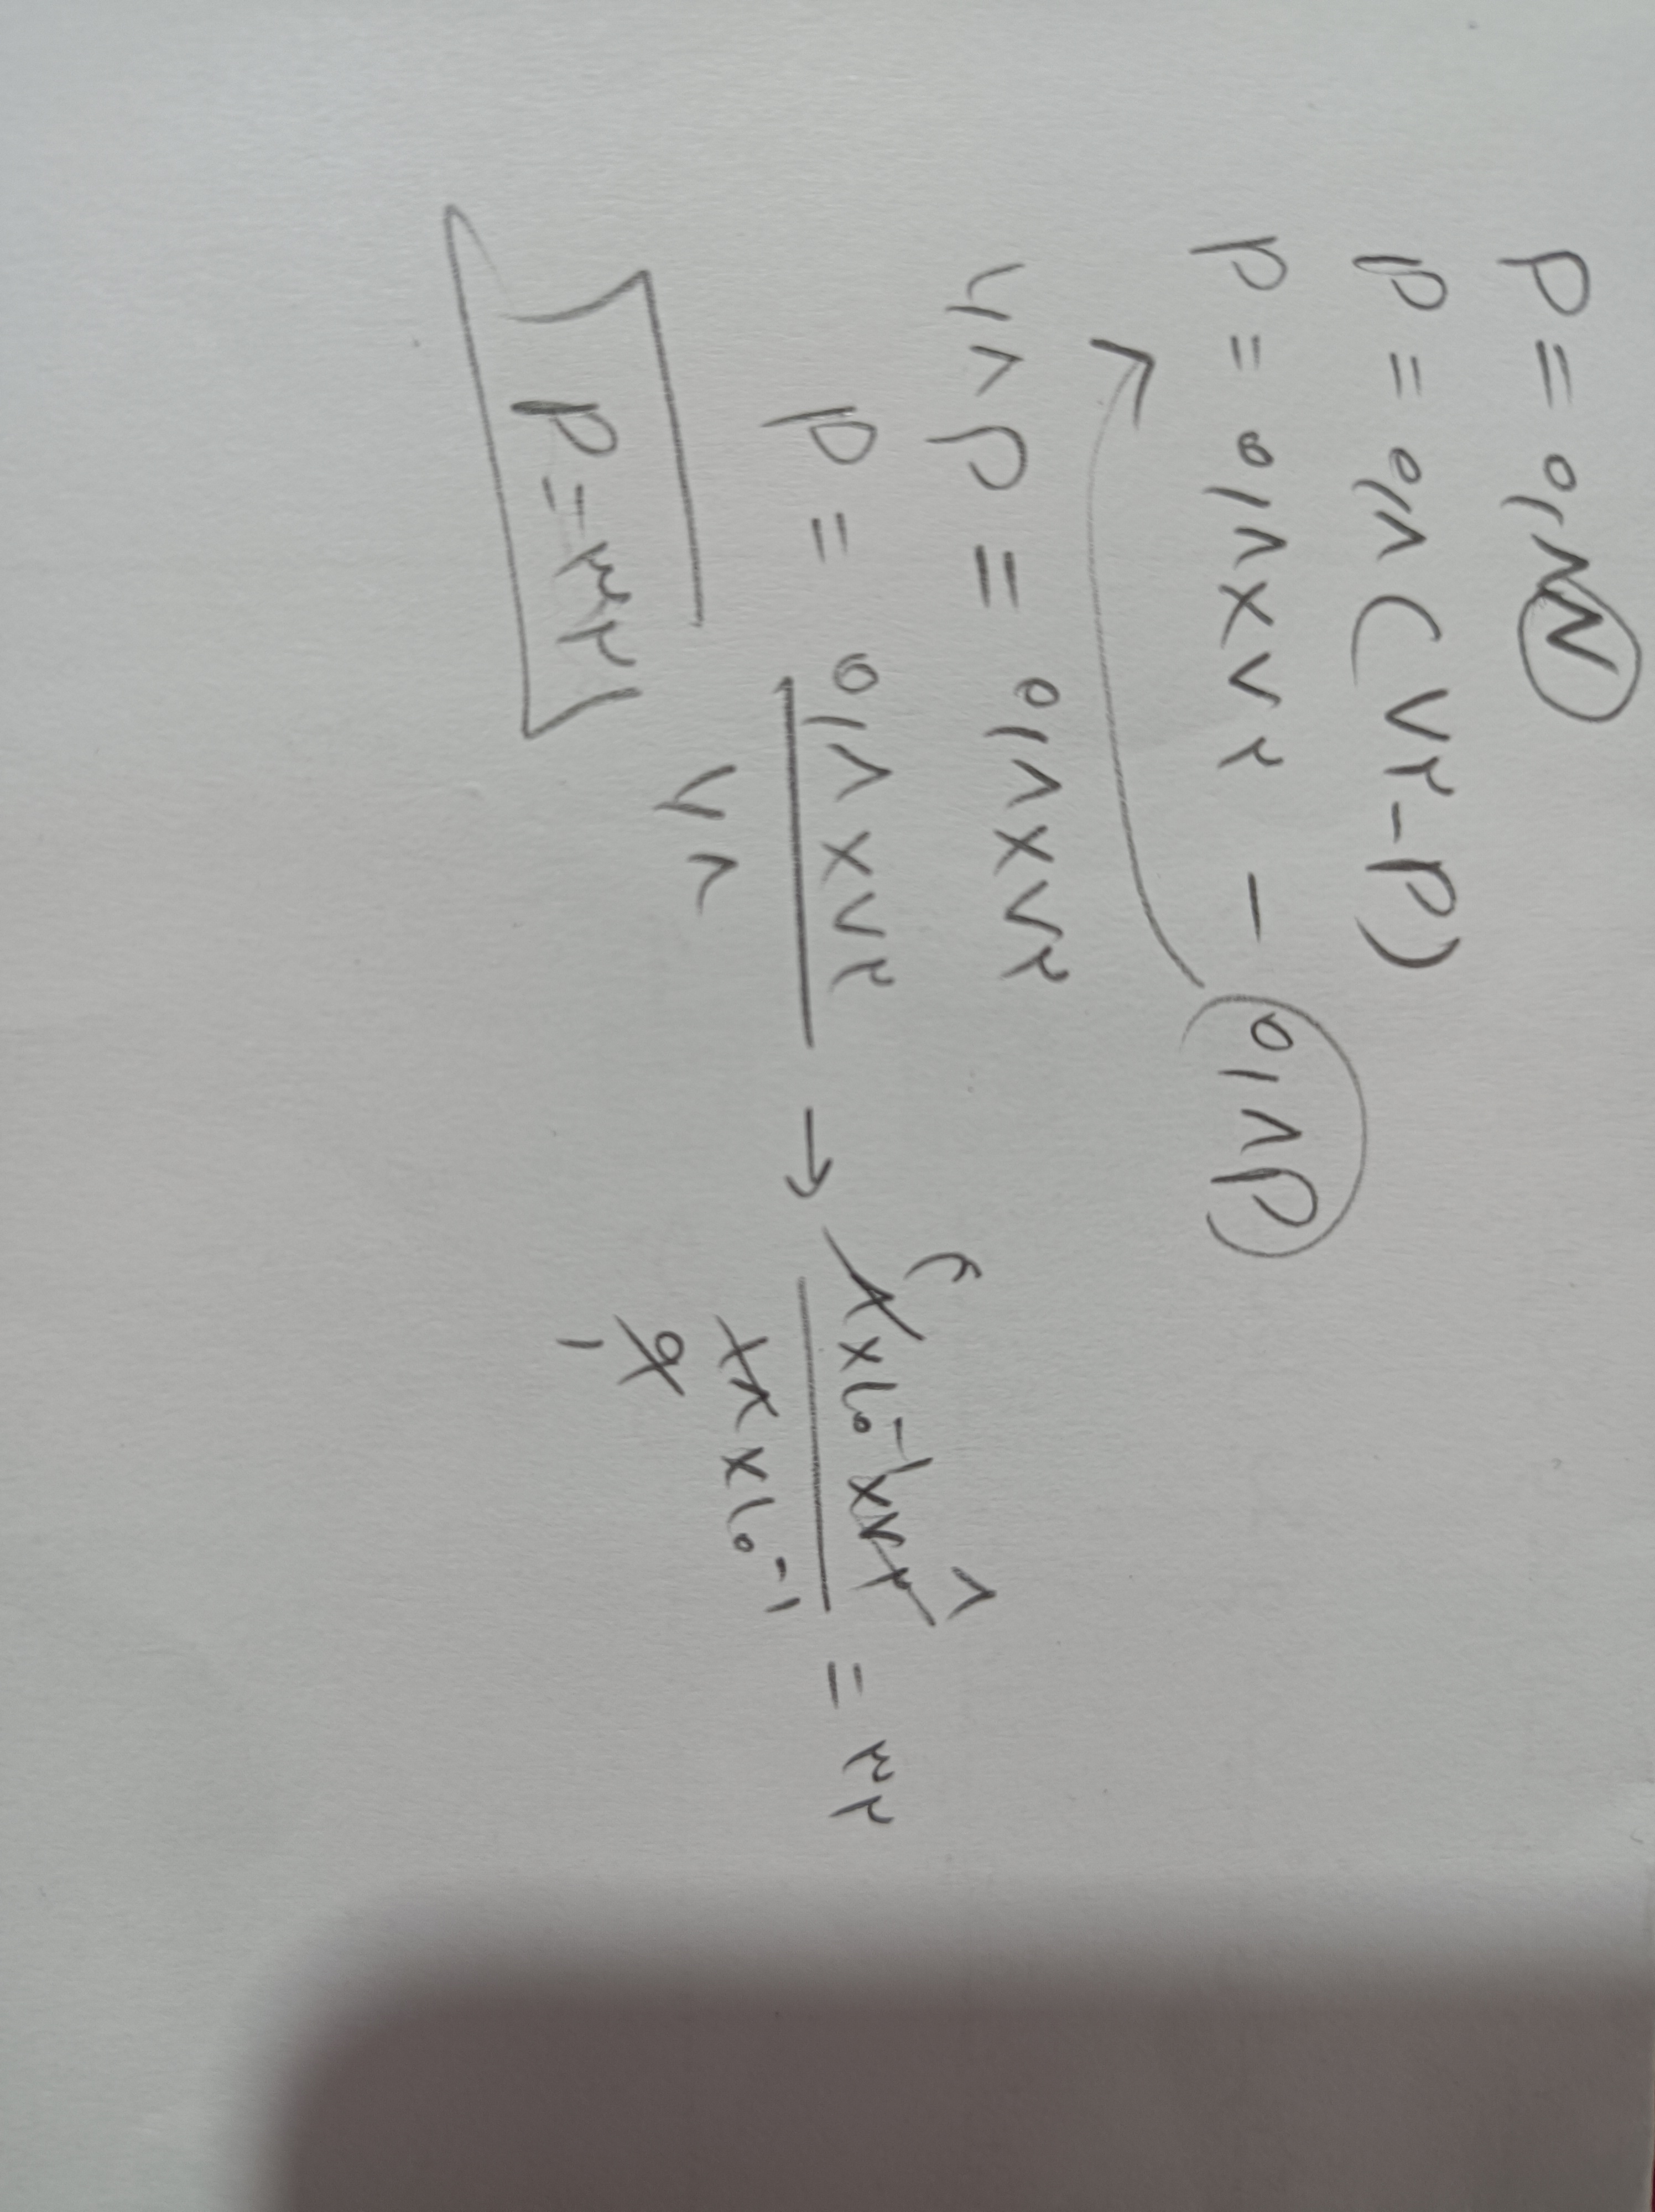 P = ۰,۸N
P = ۰,۸ (۷۲-P)
P = ۰,۸×۷۲ - ۰,۸P
۱,۸ P = ۰,۸×۷۲
P = ۰,۸×۷۲ / ۱,۸ → ۸×۱۰⁻¹×۷۲ / ۱۸×۱۰⁻¹ = ۳۲
۴ ۸
۹
۱
P = ۳۲